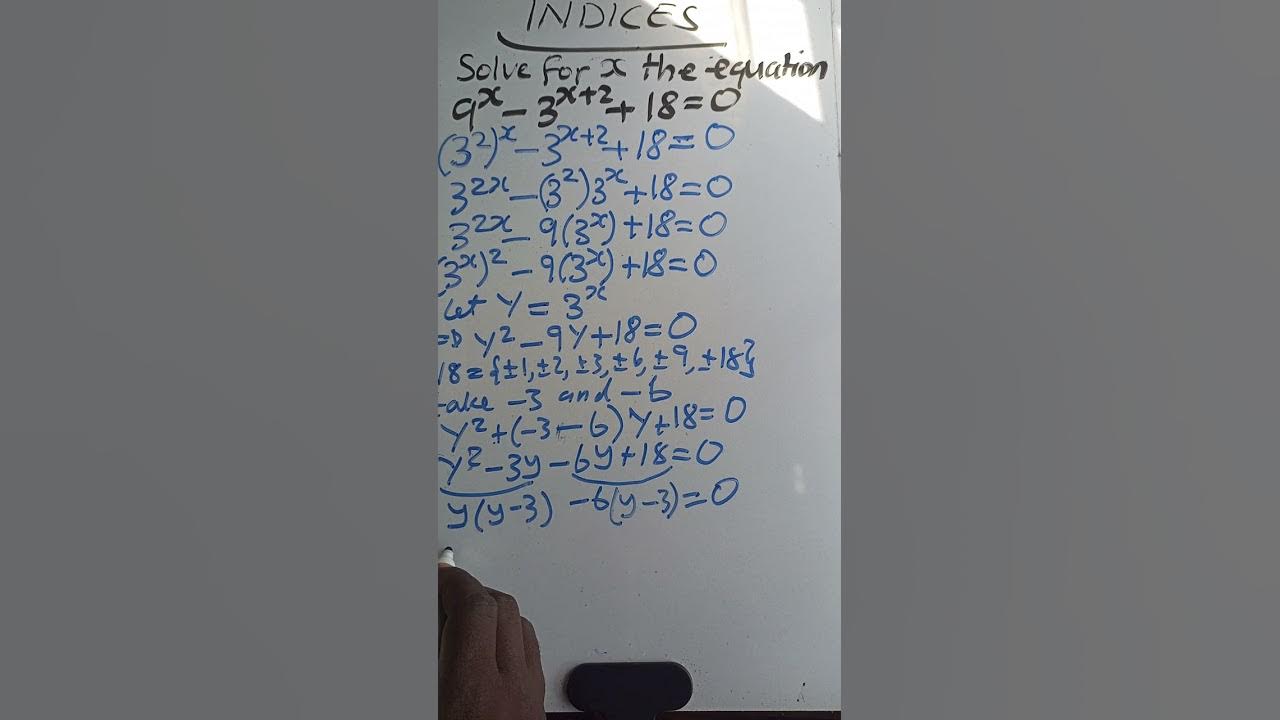 INDICES
Solve for x the equation
9^x - 3^{x+2} + 18 = 0
(3²)^x - 3^{x+2} + 18 = 0
3^{2x} - (3²)3^x + 18 = 0
3^{2x} - 9(3^x) + 18 = 0
(3^x)² - 9(3^x) + 18 = 0
Let Y = 3^x
⇒ Y² - 9Y + 18 = 0
18 = {±1, ±2, ±3, ±6, ±9, ±18}
take -3 and -6
Y² + (-3 - 6)Y + 18 = 0
y² - 3y - 6y + 18 = 0
y(y-3) - 6(y-3) = 0